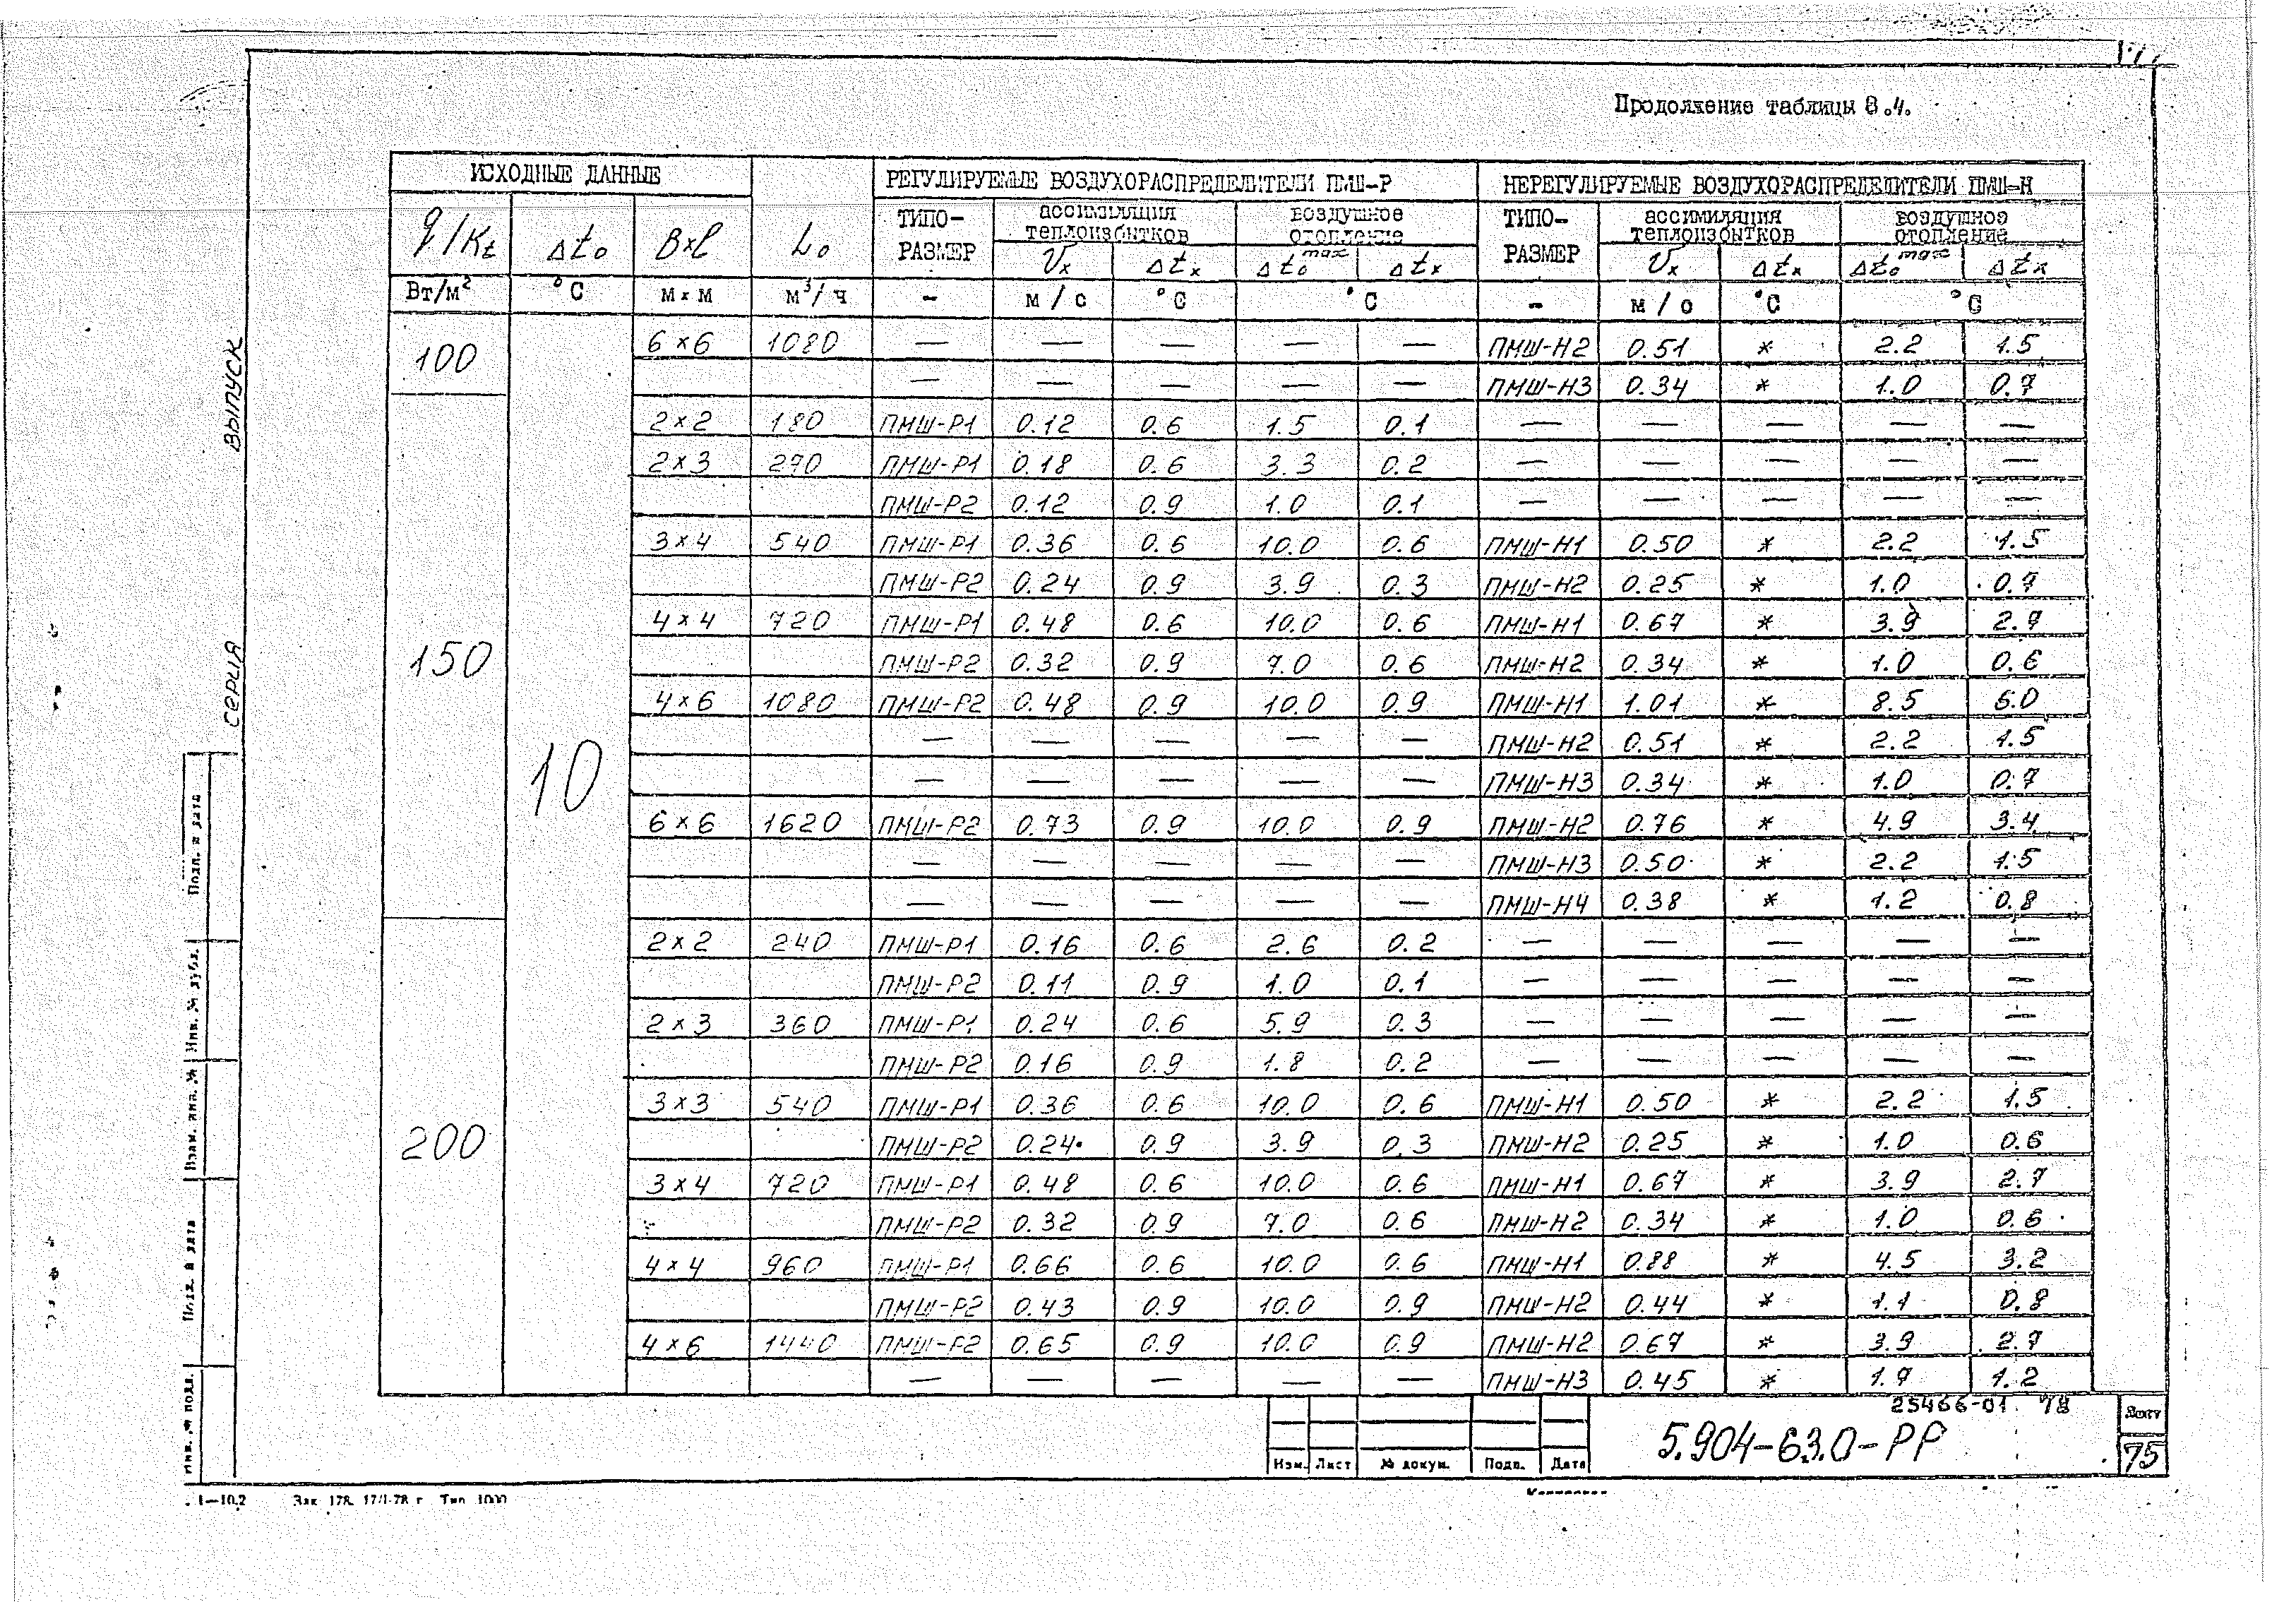 Продолжение таблицы 8.4.
ИСХОДНЫЕ ДАННЫЕ РЕГУЛИРУЕМЫЕ ВОЗДУХОРАСПРЕДЕЛИТЕЛИ ПМШ-Р НЕРЕГУЛИРУЕМЫЕ ВОЗДУХОРАСПРЕДЕЛИТЕЛИ ПМШ-Н
q/Kt Δto В×l Lo ТИПО-РАЗМЕР ассимиляция теплоизбытков воздушное отопление ТИПО-РАЗМЕР ассимиляция теплоизбытков воздушное отопление
Vx Δtx Δto max Δtx Vx Δtx Δto max Δtx
Вт/м² °С м×м м³/ч – м/с °С °С – м/с °С °С
100 10 6×6 1080 — — — — — ПМШ-Н2 0.51 * 2.2 1.5
— — — — — ПМШ-Н3 0.34 * 1.0 0.7
150 2×2 180 ПМШ-Р1 0.12 0.6 1.5 0.1 — — — — —
2×3 270 ПМШ-Р1 0.18 0.6 3.3 0.2 — — — — —
ПМШ-Р2 0.12 0.9 1.0 0.1 — — — — —
3×4 540 ПМШ-Р1 0.36 0.6 10.0 0.6 ПМШ-Н1 0.50 * 2.2 1.5
ПМШ-Р2 0.24 0.9 3.9 0.3 ПМШ-Н2 0.25 * 1.0 0.7
4×4 720 ПМШ-Р1 0.48 0.6 10.0 0.6 ПМШ-Н1 0.67 * 3.9 2.7
ПМШ-Р2 0.32 0.9 7.0 0.6 ПМШ-Н2 0.34 * 1.0 0.6
4×6 1080 ПМШ-Р2 0.48 0.9 10.0 0.9 ПМШ-Н1 1.01 * 8.5 6.0
— — — — — ПМШ-Н2 0.51 * 2.2 1.5
— — — — — ПМШ-Н3 0.34 * 1.0 0.7
6×6 1620 ПМШ-Р2 0.73 0.9 10.0 0.9 ПМШ-Н2 0.76 * 4.9 3.4
— — — — — ПМШ-Н3 0.50 * 2.2 1.5
— — — — — ПМШ-Н4 0.38 * 1.2 0.8
200 2×2 240 ПМШ-Р1 0.16 0.6 2.6 0.2 — — — — —
ПМШ-Р2 0.11 0.9 1.0 0.1 — — — — —
2×3 360 ПМШ-Р1 0.24 0.6 5.9 0.3 — — — — —
ПМШ-Р2 0.16 0.9 1.8 0.2 — — — — —
3×3 540 ПМШ-Р1 0.36 0.6 10.0 0.6 ПМШ-Н1 0.50 * 2.2 1.5
ПМШ-Р2 0.24 0.9 3.9 0.3 ПМШ-Н2 0.25 * 1.0 0.6
3×4 720 ПМШ-Р1 0.48 0.6 10.0 0.6 ПМШ-Н1 0.67 * 3.9 2.7
ПМШ-Р2 0.32 0.9 7.0 0.6 ПМШ-Н2 0.34 * 1.0 0.6
4×4 960 ПМШ-Р1 0.66 0.6 10.0 0.6 ПМШ-Н1 0.88 * 4.5 3.2
ПМШ-Р2 0.43 0.9 10.0 0.9 ПМШ-Н2 0.44 * 1.1 0.8
4×6 1440 ПМШ-Р2 0.65 0.9 10.0 0.9 ПМШ-Н2 0.67 * 3.9 2.7
— — — — — ПМШ-Н3 0.45 * 1.7 1.2
25466-01 78
5.904-63.0-РР
Лист
75
Изм. Лист № докум. Подп. Дата
1—10.2 Зак. 178. 17/I-78 г. Тип. 1000
ВЫПУСК
СЕРИЯ
Подп. и дата
Инв. № дубл.
Взам. инв. №
Подп. и дата
Инв. № подл.